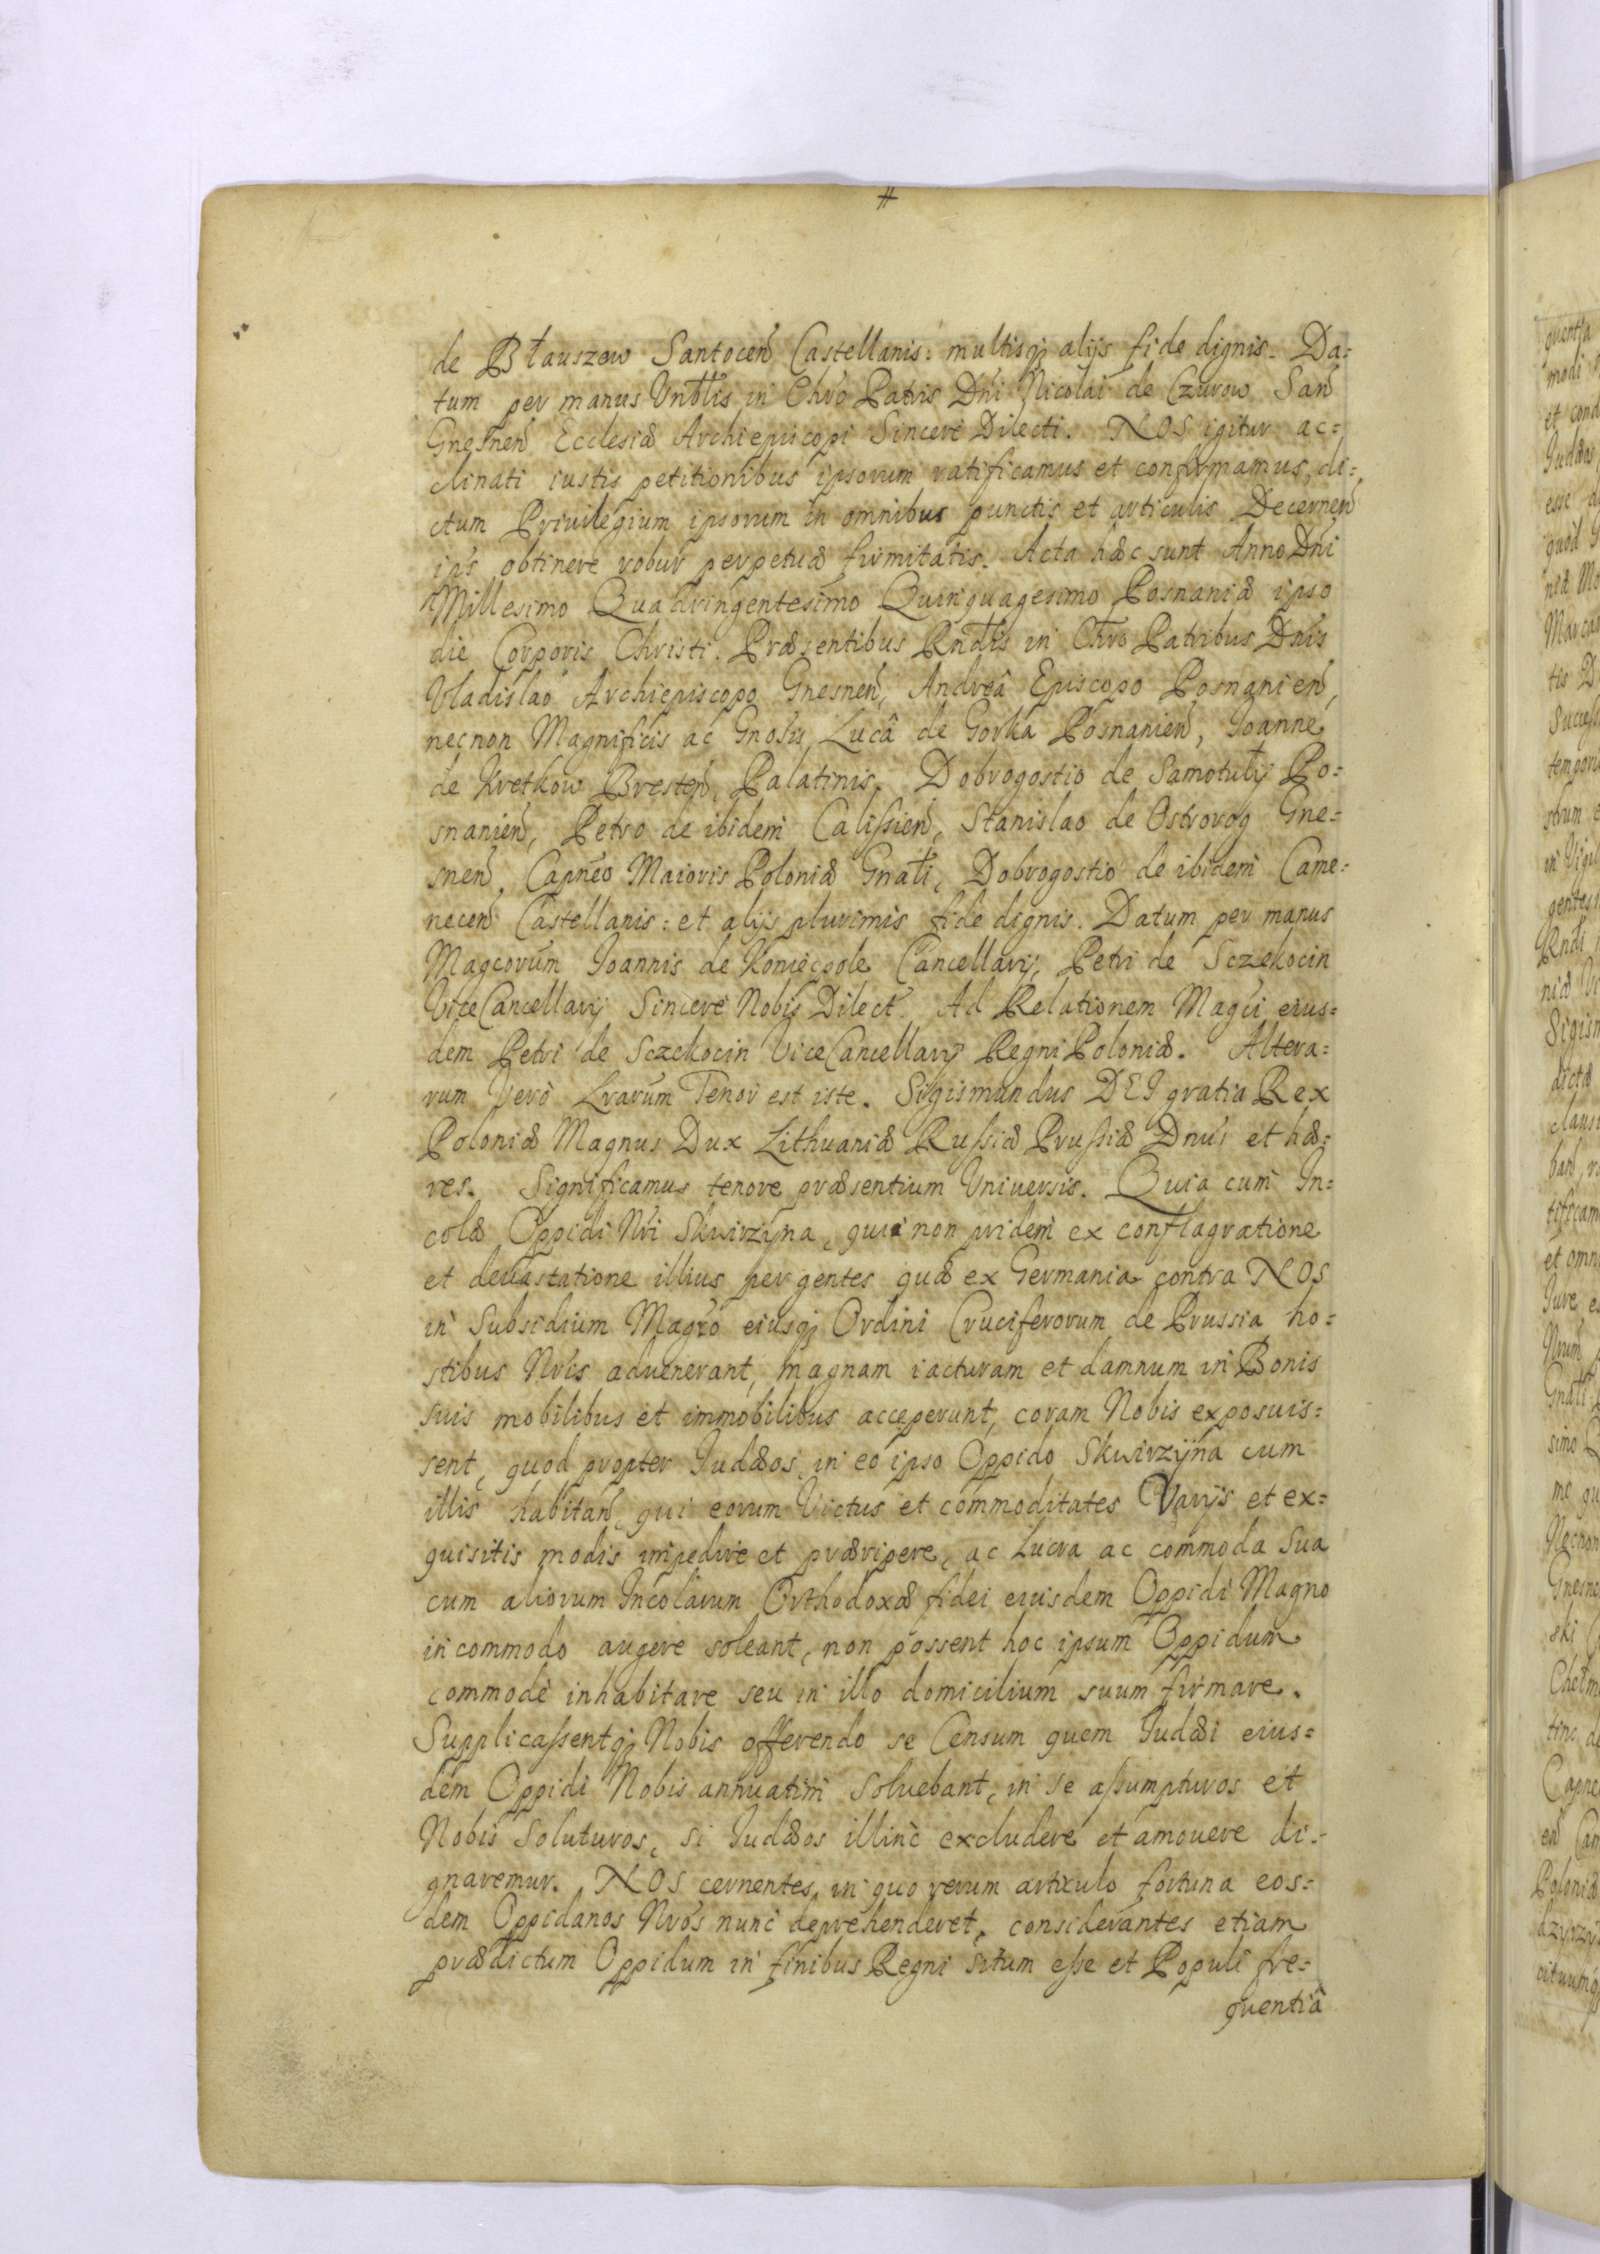 de Błauszew Santoceñ Castellanis: multisq; alijs fide dignis. Da=
tum per manus Vnблis in Chro Patris Dni Nicolai de Czurow San
Gnesneñ Ecclesiæ Archiepiscopi Sincerè Dilecti. NOS igitur ac=
clinati iustis petitionibus ipsorum ratificamus et confirmamus, di=
ctum Privilegium ipsorum in omnibus punctis et articulis Decerneñ
ips obtinere robur perpetuæ firmitatis. Acta hæc sunt Anno Dni
Millesimo Quadringentesimo Quinquagesimo Posnaniæ ipso
die Corporis Christi. Præsentibus Rndis in Chro Patribus Dnis
Vladislao Archiepiscopo Gnesneñ, Andreâ Episcopo Posnanieñ,
necnon Magnificis ac Gnosis Lucâ de Gorka Posnanieñ, Joanne
de Kretkow Bresteñ, Palatinis. Dobrogostio de Samotuły Po=
snanieñ, Petro de ibidem Calissieñ, Stanislao de Ostrorog Gne=
sneñ, Capneo Maioris Poloniæ Gnali, Dobrogostio de ibidem Came=
neceñ Castellanis: et alijs plurimis fide dignis. Datum per manus
Magcorum Joannis de Koniecpole Cancellarij, Petri de Sczekocin
ViceCancellarij Sincerè Nobis Dilect. Ad Relationem Magci eius=
dem Petri de Sczekocin ViceCancellarij Regni Poloniæ. Altera=
rum Verò Lrarum Tenor est iste. Sigismundus DEI gratia Rex
Poloniæ Magnus Dux Lithuaniæ Russiæ Prussiæ Dnus et hæ=
res. Significamus tenore præsentium Universis. Quia cum In=
colæ Oppidi Nri Skwirzÿna, qui non pridem ex conflagratione
et devastatione illius per gentes quæ ex Germania contra NOS
in Subsidium Magro eiusq; Ordini Cruciferorum de Prussia ho=
stibus Nris advenerant, magnam iacturam et damnum in Bonis
suis mobilibus et immobilibus acceperunt, coram Nobis exposuis=
sent, quod propter Judæos, in eo ipso Oppido Skwirzÿna cum
illis habitañ, qui eorum Victus et commoditates Varijs et ex=
quisitis modis impedire et præripere, ac Lucra ac commoda sua
cum aliorum Incolarum Orthodoxæ fidei eiusdem Oppidi Magno
incommodo augere soleant, non possent hoc ipsum Oppidum
commodè inhabitare seu in illo domicilium suum firmare.
Supplicassentq; Nobis offerendo se Censum quem Judæi eius=
dem Oppidi Nobis annuatim soluebant, in se assumpturos et
Nobis Soluturos, si Judæos illinc excludere et amouere di=
gnaremur. NOS cernentes in quo rerum articulo fortuna eos=
dem Oppidanos Nros nunc deprehenderet, considerantes etiam
prædictum Oppidum in finibus Regni situm esse et Populi fre=
quentiâ